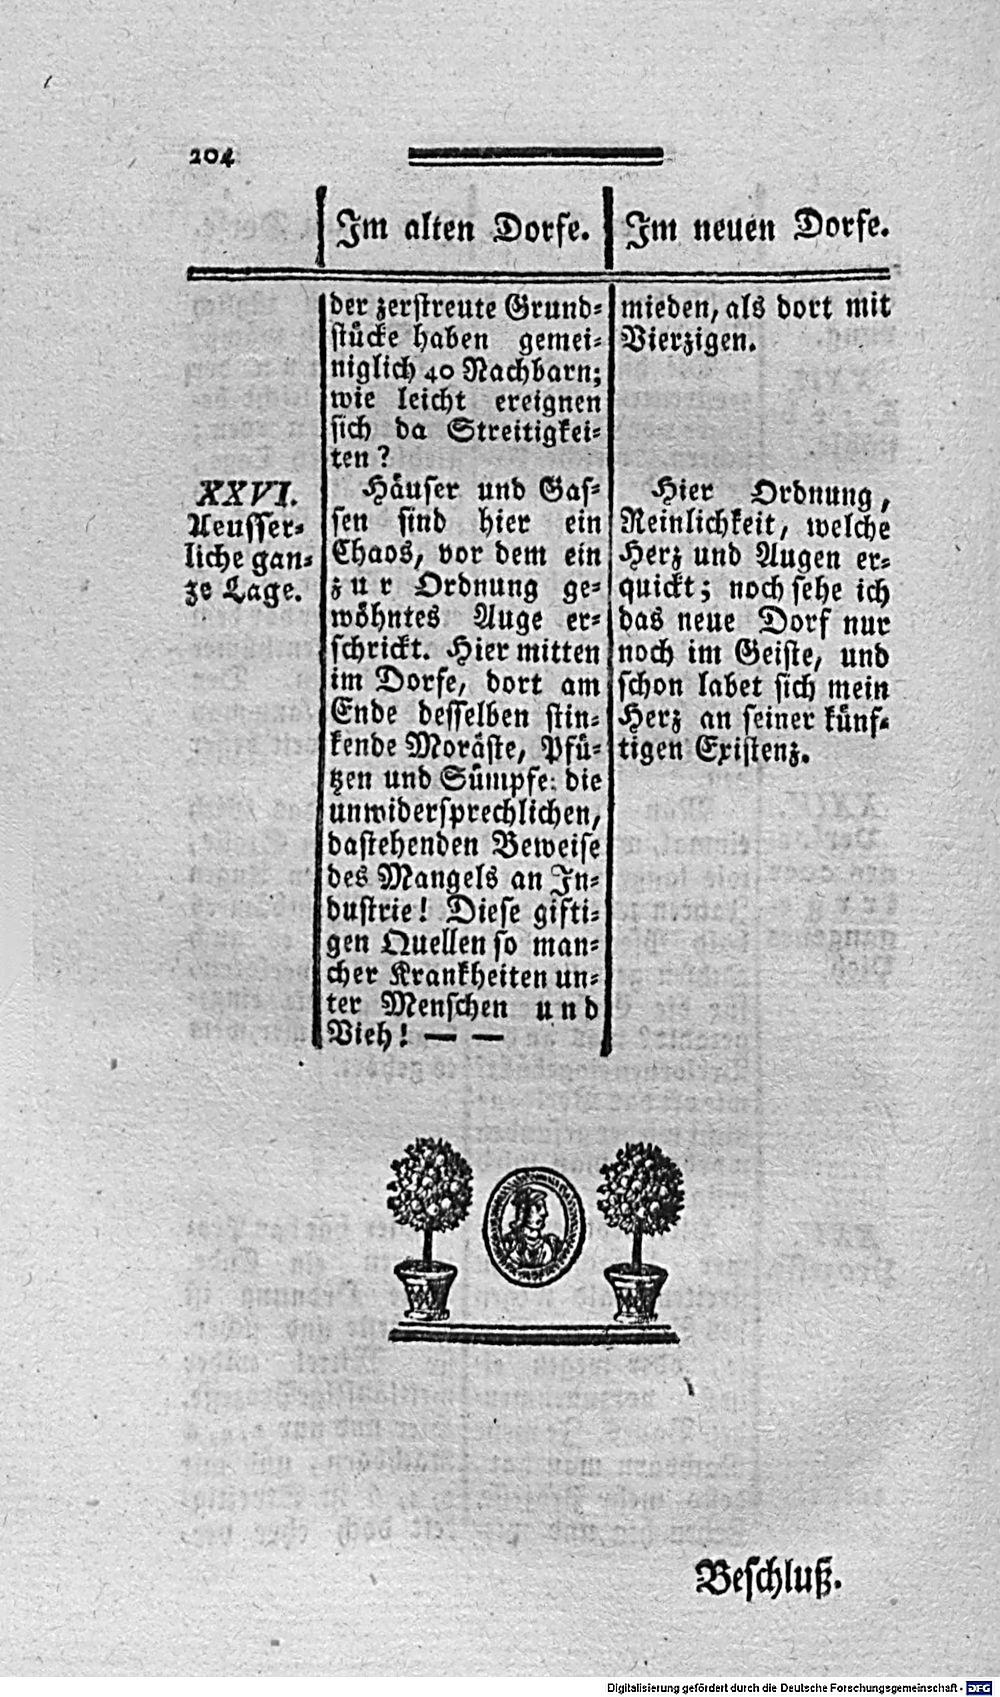 204
Im alten Dorfe.
Im neuen Dorfe.
der zerstreute Grund-
stücke haben gemei-
niglich 40 Nachbarn;
wie leicht ereignen
sich da Streitigkei-
ten?
mieden, als dort mit
Vierzigen.
XXVI.
Aeusser-
liche gan-
ze Lage.
Häuser und Gas-
sen sind hier ein
Chaos, vor dem ein
zur Ordnung ge-
wöhntes Auge er-
schrickt. Hier mitten
im Dorfe, dort am
Ende desselben stin-
kende Moräste, Pfü-
tzen und Sümpfe: die
unwidersprechlichen,
dastehenden Beweise
des Mangels an In-
dustrie! Diese gifti-
gen Quellen so man-
cher Krankheiten un-
ter Menschen und
Vieh! — —
Hier Ordnung,
Reinlichkeit, welche
Herz und Augen er-
quickt; noch sehe ich
das neue Dorf nur
noch im Geiste, und
schon labet sich mein
Herz an seiner künf-
tigen Existenz.
Beschluß.
Digitalisierung gefördert durch die Deutsche Forschungsgemeinschaft - DFG